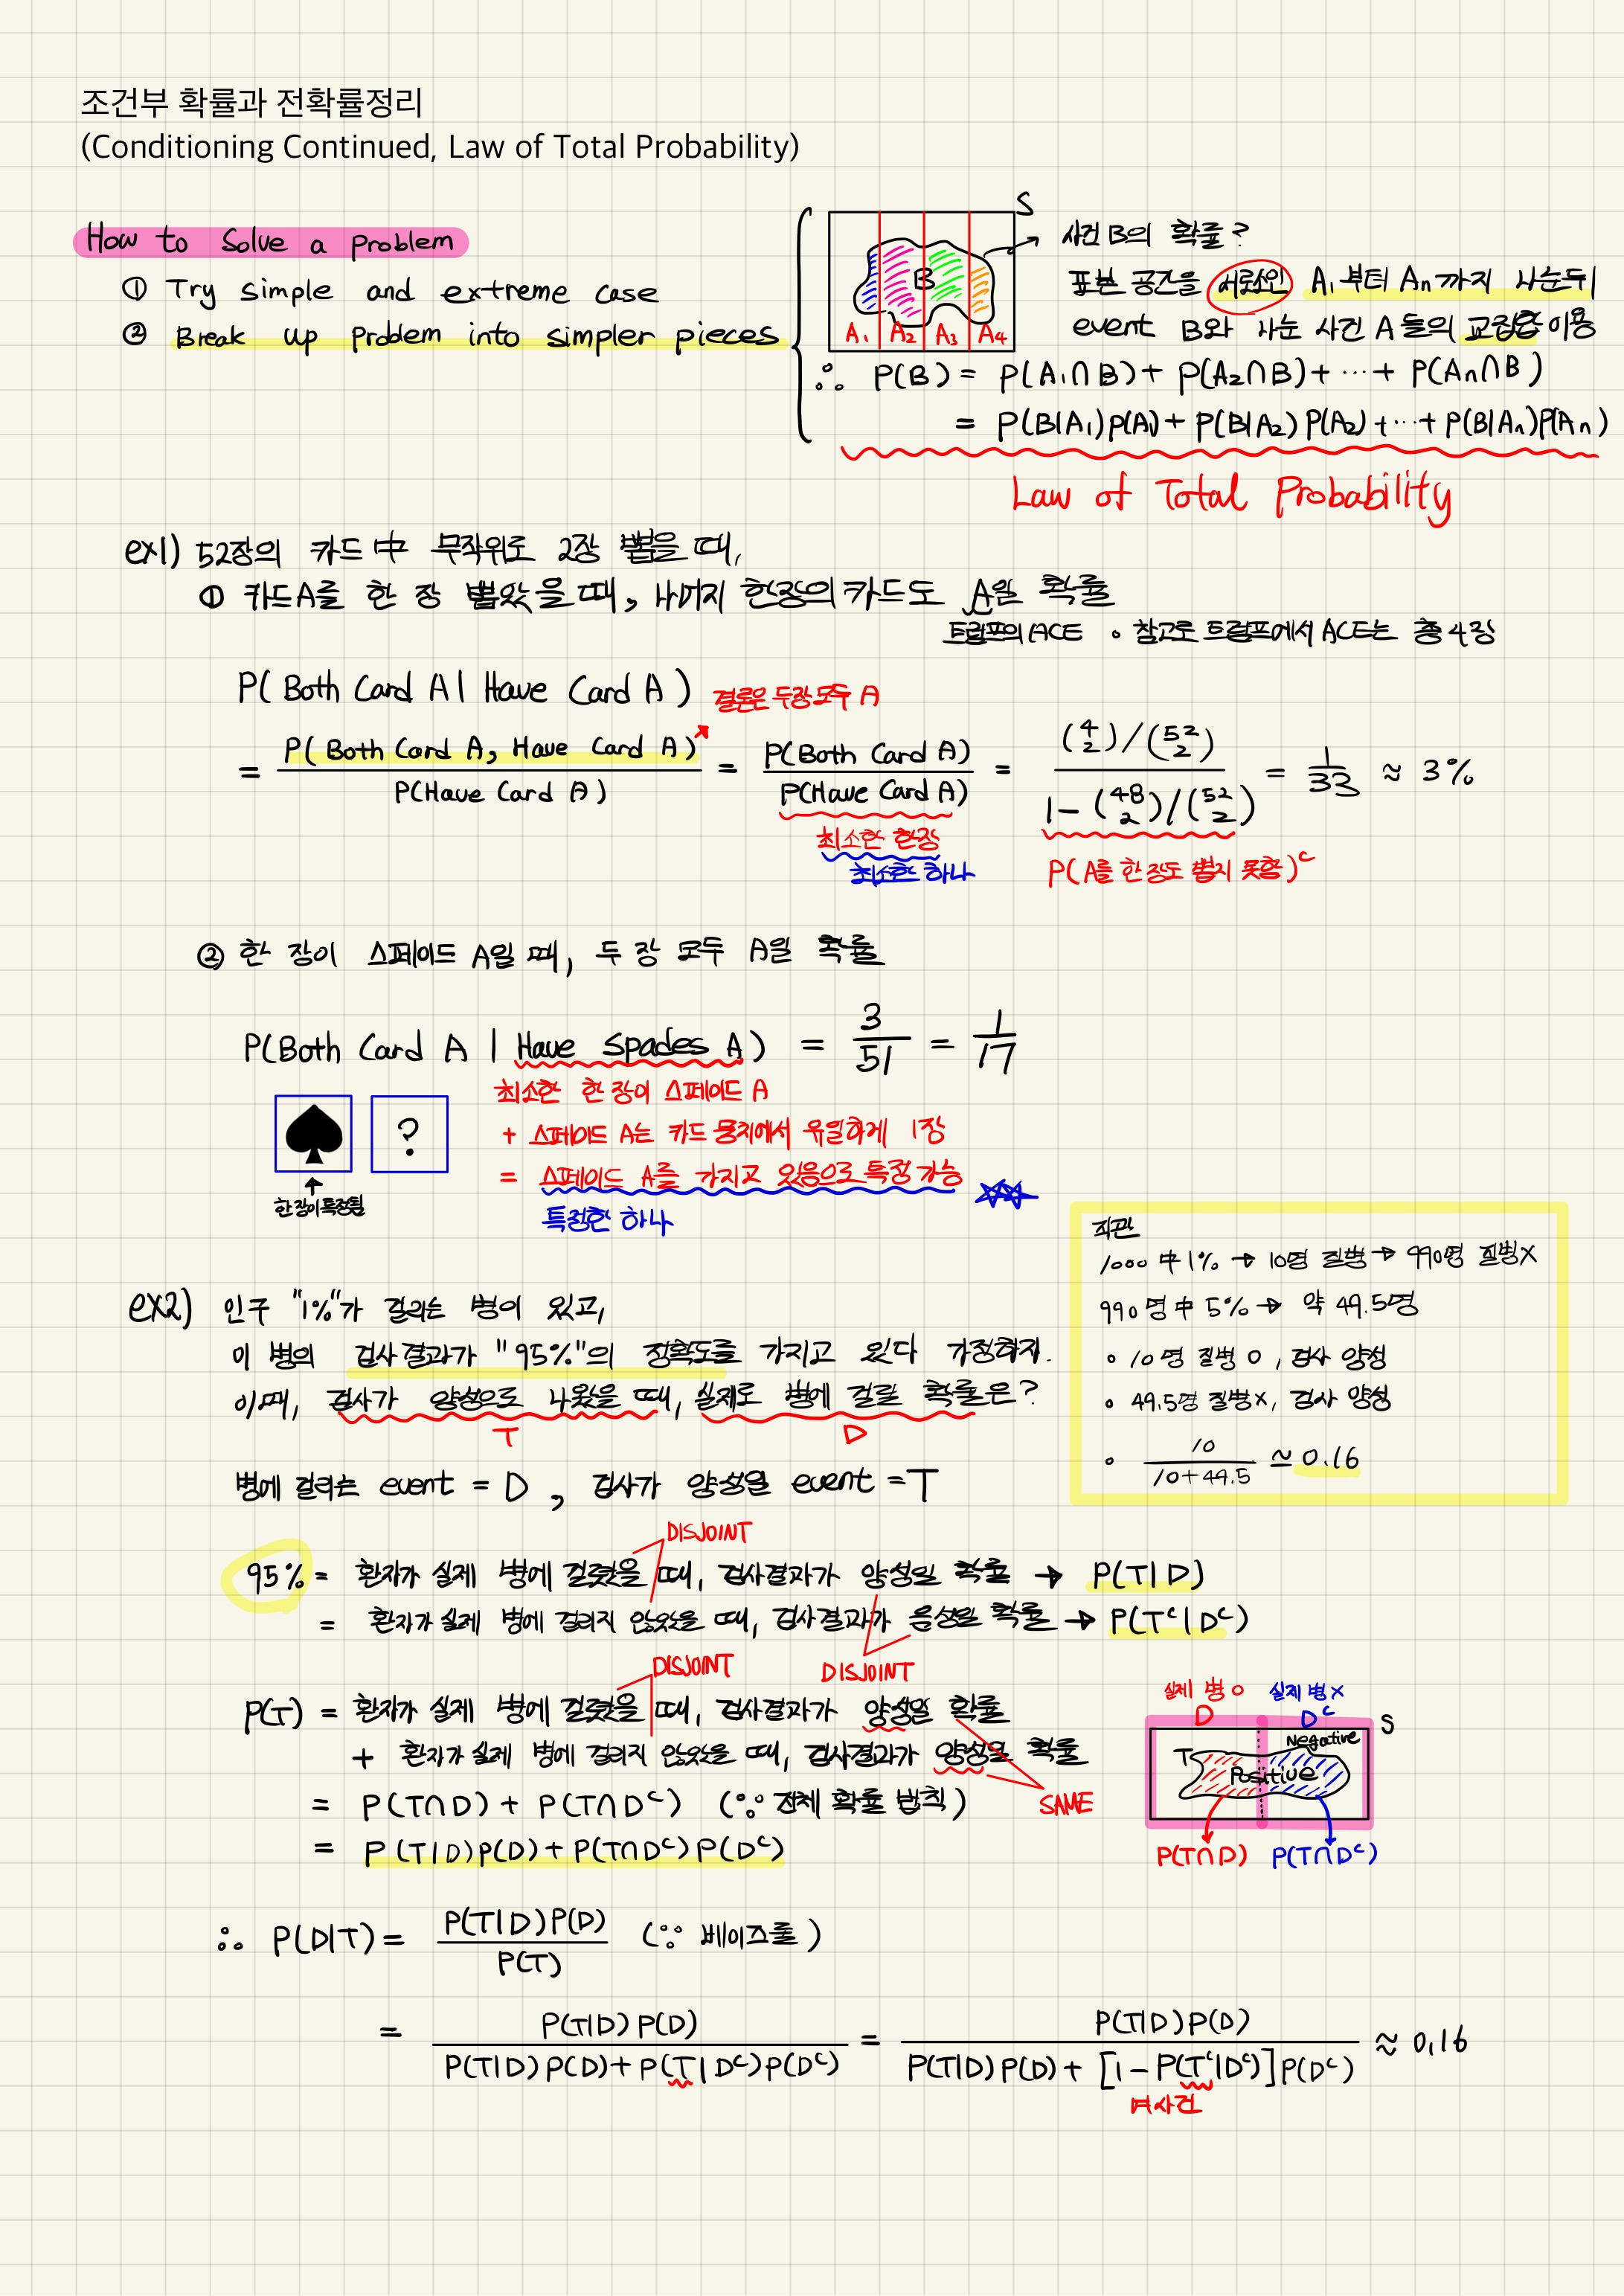 조건부 확률과 전확률정리
(Conditioning Continued, Law of Total Probability)
How to Solve a problem
① Try simple and extreme case
② Break up problem into simpler pieces
S
B
A₁ A₂ A₃ A₄
사건 B의 확률?
표본 공간을 서로소인 A₁부터 Aₙ까지 나눈뒤
event B와 나눈 사건 A들의 교집합 이용
∴ P(B) = P(A₁∩B) + P(A₂∩B) + ⋯ + P(Aₙ∩B)
= P(B|A₁)P(A₁) + P(B|A₂)P(A₂) + ⋯ + P(B|Aₙ)P(Aₙ)
Law of Total Probability
ex1) 52장의 카드 中 무작위로 2장 뽑을 때,
① 카드A를 한 장 뽑았을 때, 나머지 한장의 카드도 A일 확률
트럼프의 ACE 。참고로 트럼프에서 ACE는 총 4장
P( Both Card A | Have Card A )
결론은 두장 모두 A
= P( Both Card A, Have Card A ) / P(Have Card A) = P(Both Card A) / P(Have Card A) = (4 2)/(52 2) / 1-(48 2)/(52 2) = 1/33 ≈ 3%
최소한 한장
최소한 하나
P(A를 한 장도 뽑지 못함)ᶜ
② 한 장이 스페이드 A일 때, 두 장 모두 A일 확률
P(Both Card A | Have Spades A) = 3/51 = 1/17
최소한 한 장이 스페이드 A
+ 스페이드 A는 카드 뭉치에서 유일하게 1장
= 스페이드 A를 가지고 있음으로 특정 가능
특정한 하나
?
한 장이 특정됨
직관
1000 中 1% → 10명 질병 → 990명 질병X
990명 中 5% → 약 49.5명
∘ 10명 질병 O, 검사 양성
∘ 49.5명 질병X, 검사 양성
∘ 10 / 10+49.5 ≃ 0.16
ex2) 인구 "1%"가 걸리는 병이 있고,
이 병의 검사결과가 "95%"의 정확도를 가지고 있다 가정하자.
이때, 검사가 양성으로 나왔을 때, 실제로 병에 걸릴 확률은?
T D
병에 걸리는 event = D , 검사가 양성일 event = T
DISJOINT
95% = 환자가 실제 병에 걸렸을 때, 검사결과가 양성일 확률 → P(T|D)
= 환자가 실제 병에 걸리지 않았을 때, 검사결과가 음성일 확률 → P(Tᶜ|Dᶜ)
DISJOINT DISJOINT
P(T) = 환자가 실제 병에 걸렸을 때, 검사결과가 양성일 확률
+ 환자가 실제 병에 걸리지 않았을 때, 검사결과가 양성일 확률
SAME
= P(T∩D) + P(T∩Dᶜ) (∵ 전체 확률 법칙)
= P(T|D)P(D) + P(T∩Dᶜ)P(Dᶜ)
실제 병 O 실제 병 X
D Dᶜ S
Negative
T Positive
P(T∩D) P(T∩Dᶜ)
∴ P(D|T) = P(T|D)P(D) / P(T) (∵ 베이즈룰)
= P(T|D)P(D) / P(T|D)P(D) + P(T|Dᶜ)P(Dᶜ) = P(T|D)P(D) / P(T|D)P(D) + [1-P(Tᶜ|Dᶜ)]P(Dᶜ) ≈ 0.16
여사건